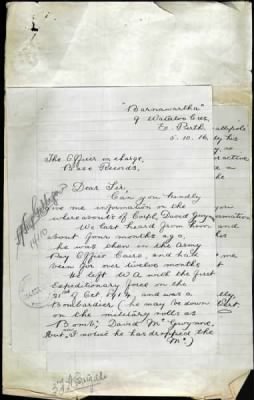 "Barnawartha"
9 Waterloo Cres.
E. Perth.
5.10.16
The Officer in charge,
Base Records.
Dear Sir,
Can you kindly
give me information on the
whereabouts of Corpl. David Gwynne
We last heard from him
about four months ago,
he was then in the Army
Pay Office Cairo, and had
been for over twelve months
He left W.A with the first
Expeditionary force on the
31st of Oct 1914, and was a
Bombardier (he may be down
on the military rolls as
Bomb: David Mc Gwynne,
but I notice he has dropped the
Mc.)
14/10
3rd A Brigade